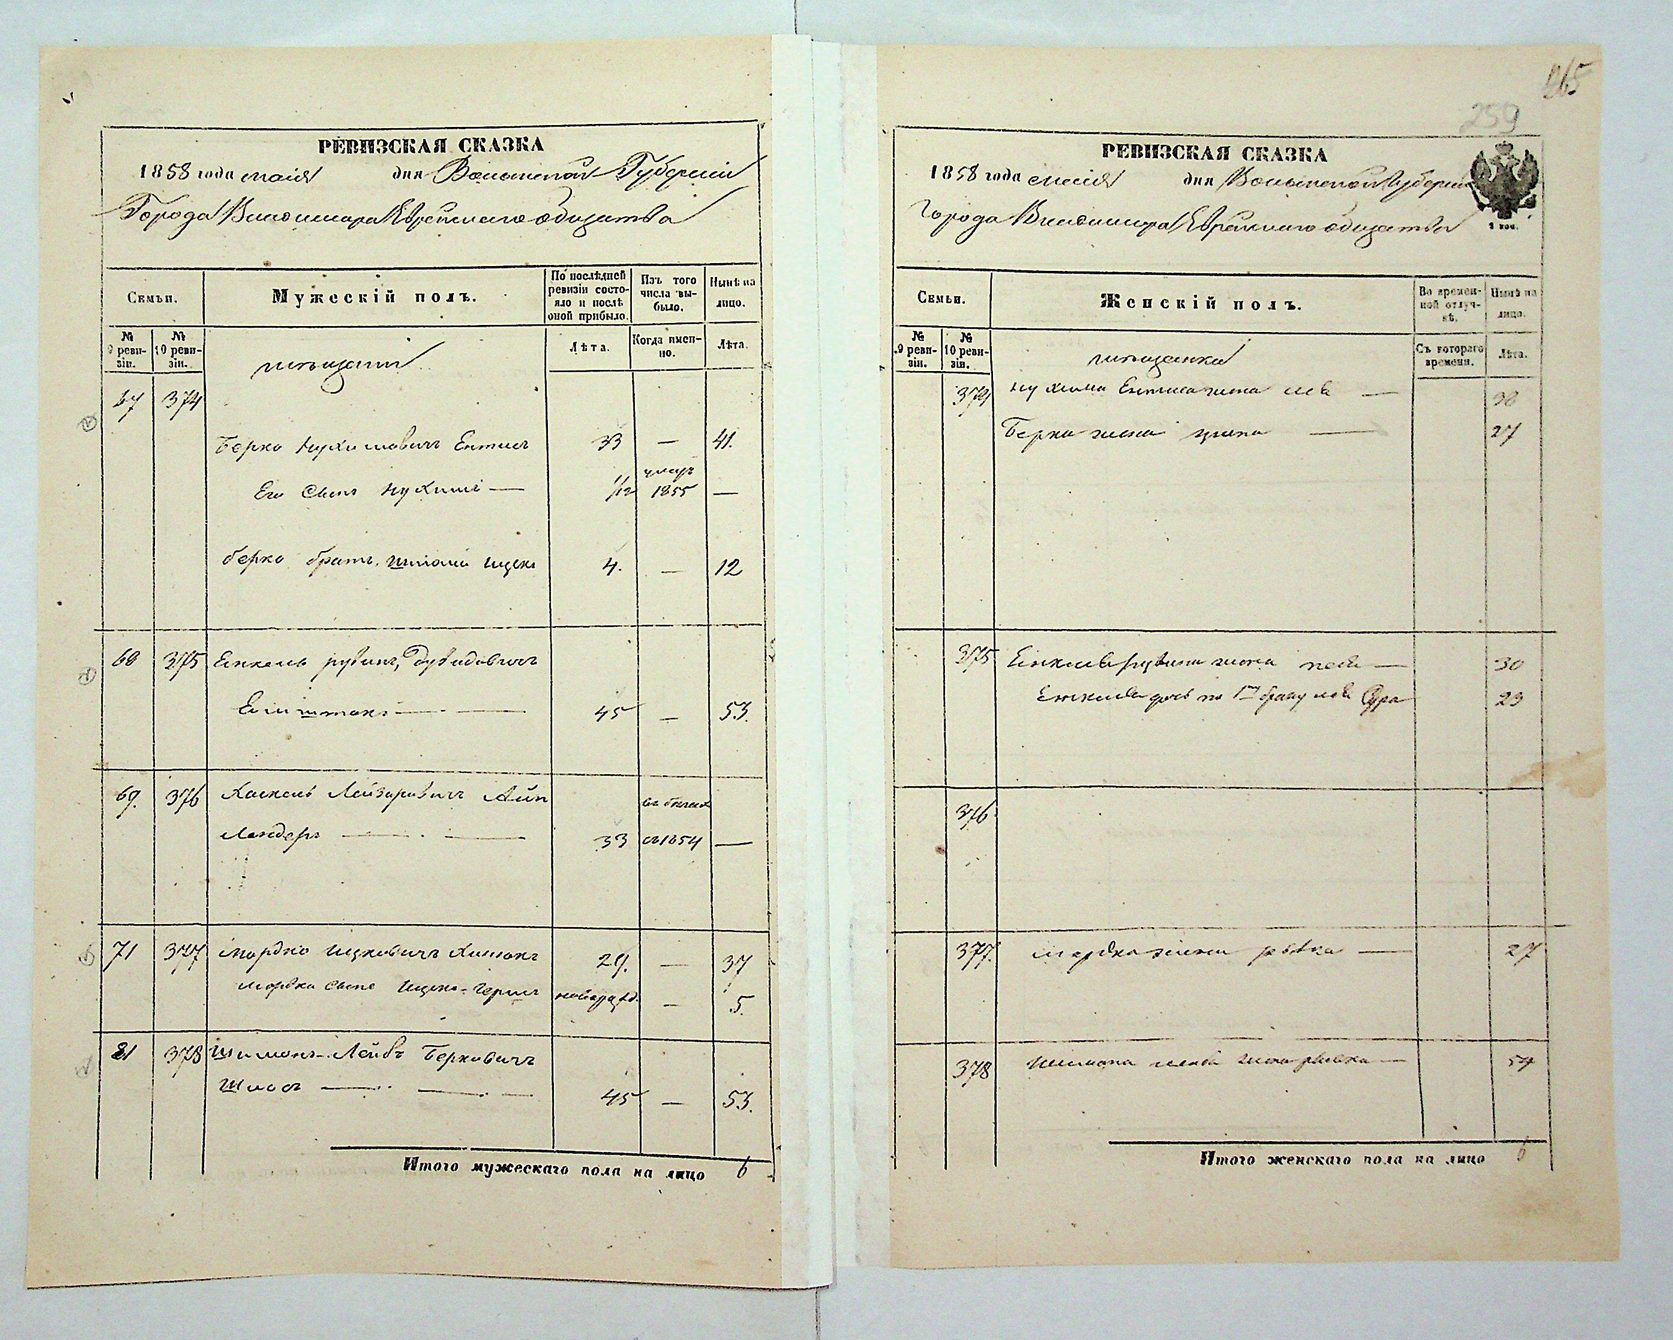 РЕВИЗСКАЯ СКАЗКА
1858 года маія дня Волынской Губерніи
Города Владимира Еврейскаго общества
Семьи.
Мужескій полъ.
По послѣдней ревизіи состояло и послѣ оной прибыло.
Изъ того числа выбыло.
Нынѣ на лицо.
№ 9 ревизіи.
№ 10 ревизіи.
мѣщане
Лѣта.
Когда именно.
Лѣта.
67 374
Берко Нухимовичъ 33 — 41.
умеръ
Его Сынъ Нухимъ — 1/12 1855 —
Берко братъ Ицко 4. — 12
68 375 Енкель Рувинъ Дувидовичъ
45 — 53.
69. 376 Хаскель Лейзеровичъ
33 1854 —
71 377 Мордко Ицковичъ 29. — 37
Мордка сынъ Ицко Герш новорожд. — 5.
81 378 Шимонъ-Лейбъ Берковичъ
45 — 53.
Итого мужескаго пола на лицо 6
265
259
РЕВИЗСКАЯ СКАЗКА
1858 года маія дня Волынской Губерніи
Города Владимира Еврейскаго общества
Семьи.
Женскій полъ.
Во временной отлучкѣ.
Нынѣ на лицо.
№ 9 ревизіи.
№ 10 ревизіи.
мѣщанки
Съ котораго времени.
Лѣта.
374 Нухима жена —
Берка жена — 27
375 Енкеля Рувина жена — 30
Енкеля дочь по 1му браку 23
376
377. Мордка жена Ривка — 27
378 Шимона Лейба жена Ривка — 54
Итого женскаго пола на лицо 6